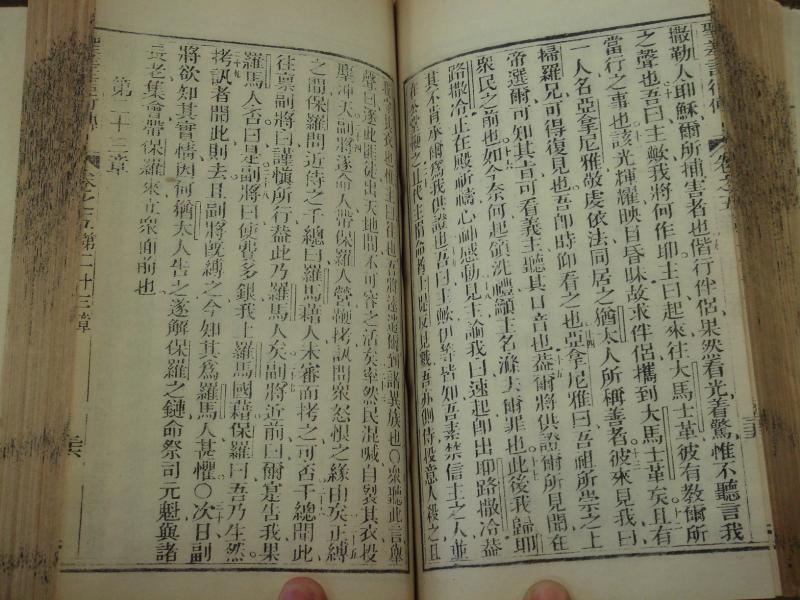 聖差言行傳 卷之五
撒勒人耶穌爾所捕害者也偕行伴侶果然着光着驚惟不聽言我
之聲也吾曰主歟我將何作耶主曰起來往大馬士革彼有教爾所
當行之事也該光輝耀映目昏昧故求伴侶攜到大馬士革矣且有
一人名亞拿尼雅敬虔依法同居之猶太人所稱善者彼來見我曰
掃羅兄可得復見也吾卽時仰看之也亞拿尼雅曰吾祖所崇之上
帝選爾可知其旨可看義主聽其口音也蓋爾將供證爾所見聞在
衆民之前也如今奈何起領洗禮籲主名滌夫爾罪也此後我歸耶
路撒冷正在殿祈禱心神感動見主諭我曰速起卽出耶路撒冷蓋
其不肯承爾爲我供證也吾曰主歟伊等皆知吾素禁信主之人並
在公堂鞭之且代主 者士提反見戮吾亦側侍投意人殺之且
衣也惟主曰往也吾將遠遣爾到諸異族也○衆聽此言舉
聲曰逐此匪徒出天地間不可容之活矣 然民混喊自裂其衣投
塵冲天副將遂命人帶保羅入營鞭拷訊問衆忿恨之緣由矣正縛
之間保羅問近侍之千總曰羅馬藉人未審而拷之可否千總聞此
往禀副將曰謹愼所行蓋此乃羅馬人矣副將近前曰爾寔告我果
羅馬人否曰是副將曰使費多銀我上羅馬國藉保羅曰吾乃生然
拷訊者聞此則去且副將旣縛之今知其爲羅馬人甚懼○次日副
將欲知其實情因何猶太人告之遂解保羅之鏈命祭司元魁與諸
長老集會帶保羅來立衆面前也
第二十三章
卷之五第二十三章